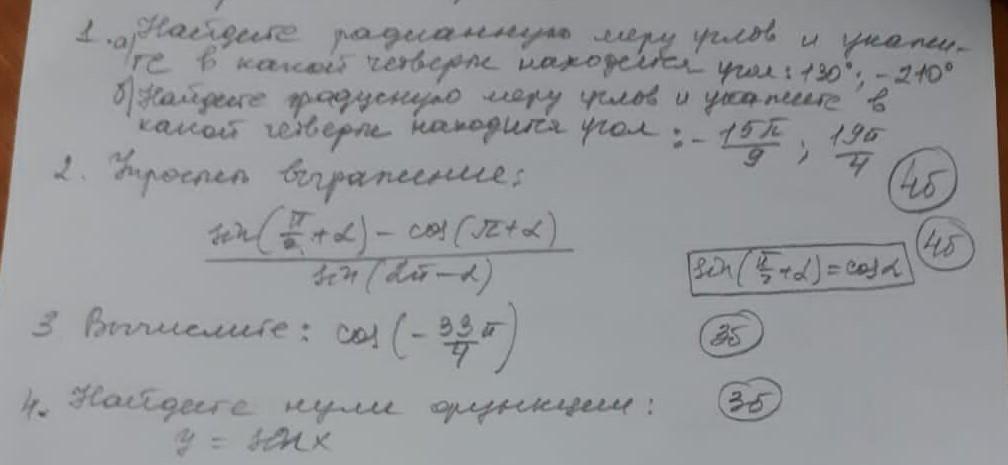 1. а) Найдите радианную меру углов и укажи-
те в какой четверти находится угол: 130°; -210°
б) Найдите градусную меру углов и укажите в
какой четверти находится угол: -15π/9; 19π/4
4б
2. Упростить выражение:
(sin(π/2+α) - cos(π+α))/sin(2π-α)
sin(π/2+α)=cosα
4б
3 Вычислите: cos(-33/4 π)
3б
4. Найдите нули функции:
3б
y = sin x